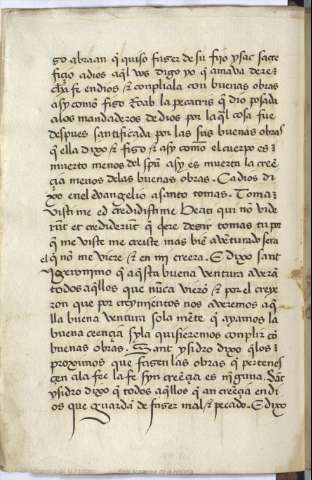 go abraan q̃ quiso fazer de su fijo ysac sacre
ficio adios aq̃l vos digo yo q̃ amava dere
cha fe en dios ⁊ conpliala con buenas obras
asy como figo Raab la pecatris q̃ dio posada
alos mandaderos de dios por la q̃l cosa fue
despues santificada por las sus buenas obras
q̃ ella dixo ⁊ figo ⁊ asy como el cuerpo es
muerto menos del spũ asy es muerta la creẽ
çia menos delas buenas obras. Ca dios di
xo en el evangelio a santo tomas. Toma
visti me ed credidistime beati qui nõ vide
rũt et crediderũt q̃ q̃ere desir tomas tu por
q̃ me viste me creiste mas biẽ aventurado sera
el q̃ nõ me viere ⁊ en mi creera. E dixo sant
geronimo q̃ aq̃sta buena ventura averã
todos aq̃llos que nũca vierõ ⁊ por el creye
ron que por creymientos nos averemos aq̃
lla buena ventura sola mẽte q̃ ayamos la
buena creençia sy la quisieremos conplir cõ
buenas obras. Sant ysidro dixo q̃ los
proximos que fazen las obras q̃ pertenes
çen ala fe ⁊ la fe syn creẽçia es nĩguna. Sãt
ysidro dixo q̃ todos aq̃llos q̃ an creẽçia en di
os que guardã de fazer mal ⁊ pecado. E dixo
Real Academia de la Historia